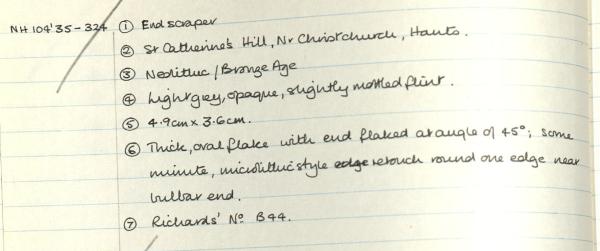 NH 104'35-324 ① End scraper
② St Catherine's Hill, Nr Christchurch, Hants.
③ Neolithic / Bronze Age
④ Light grey, opaque, slightly mottled flint.
⑤ 4.9cm x 3.6cm.
⑥ Thick, oval flake with end flaked at angle of 45°; some
minute, microlithic style edge retouch round one edge near
bulbar end.
⑦ Richards' No B44.